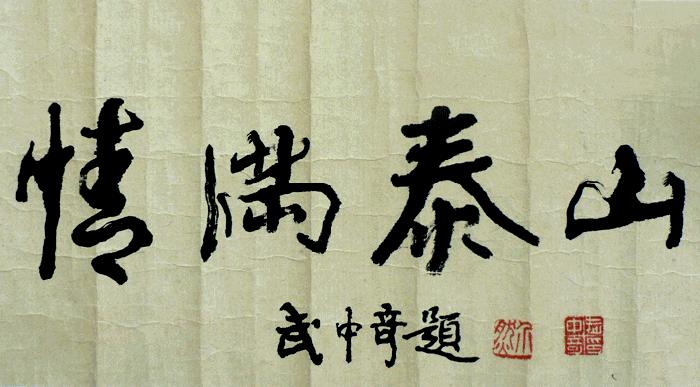 情满泰山
武中奇题